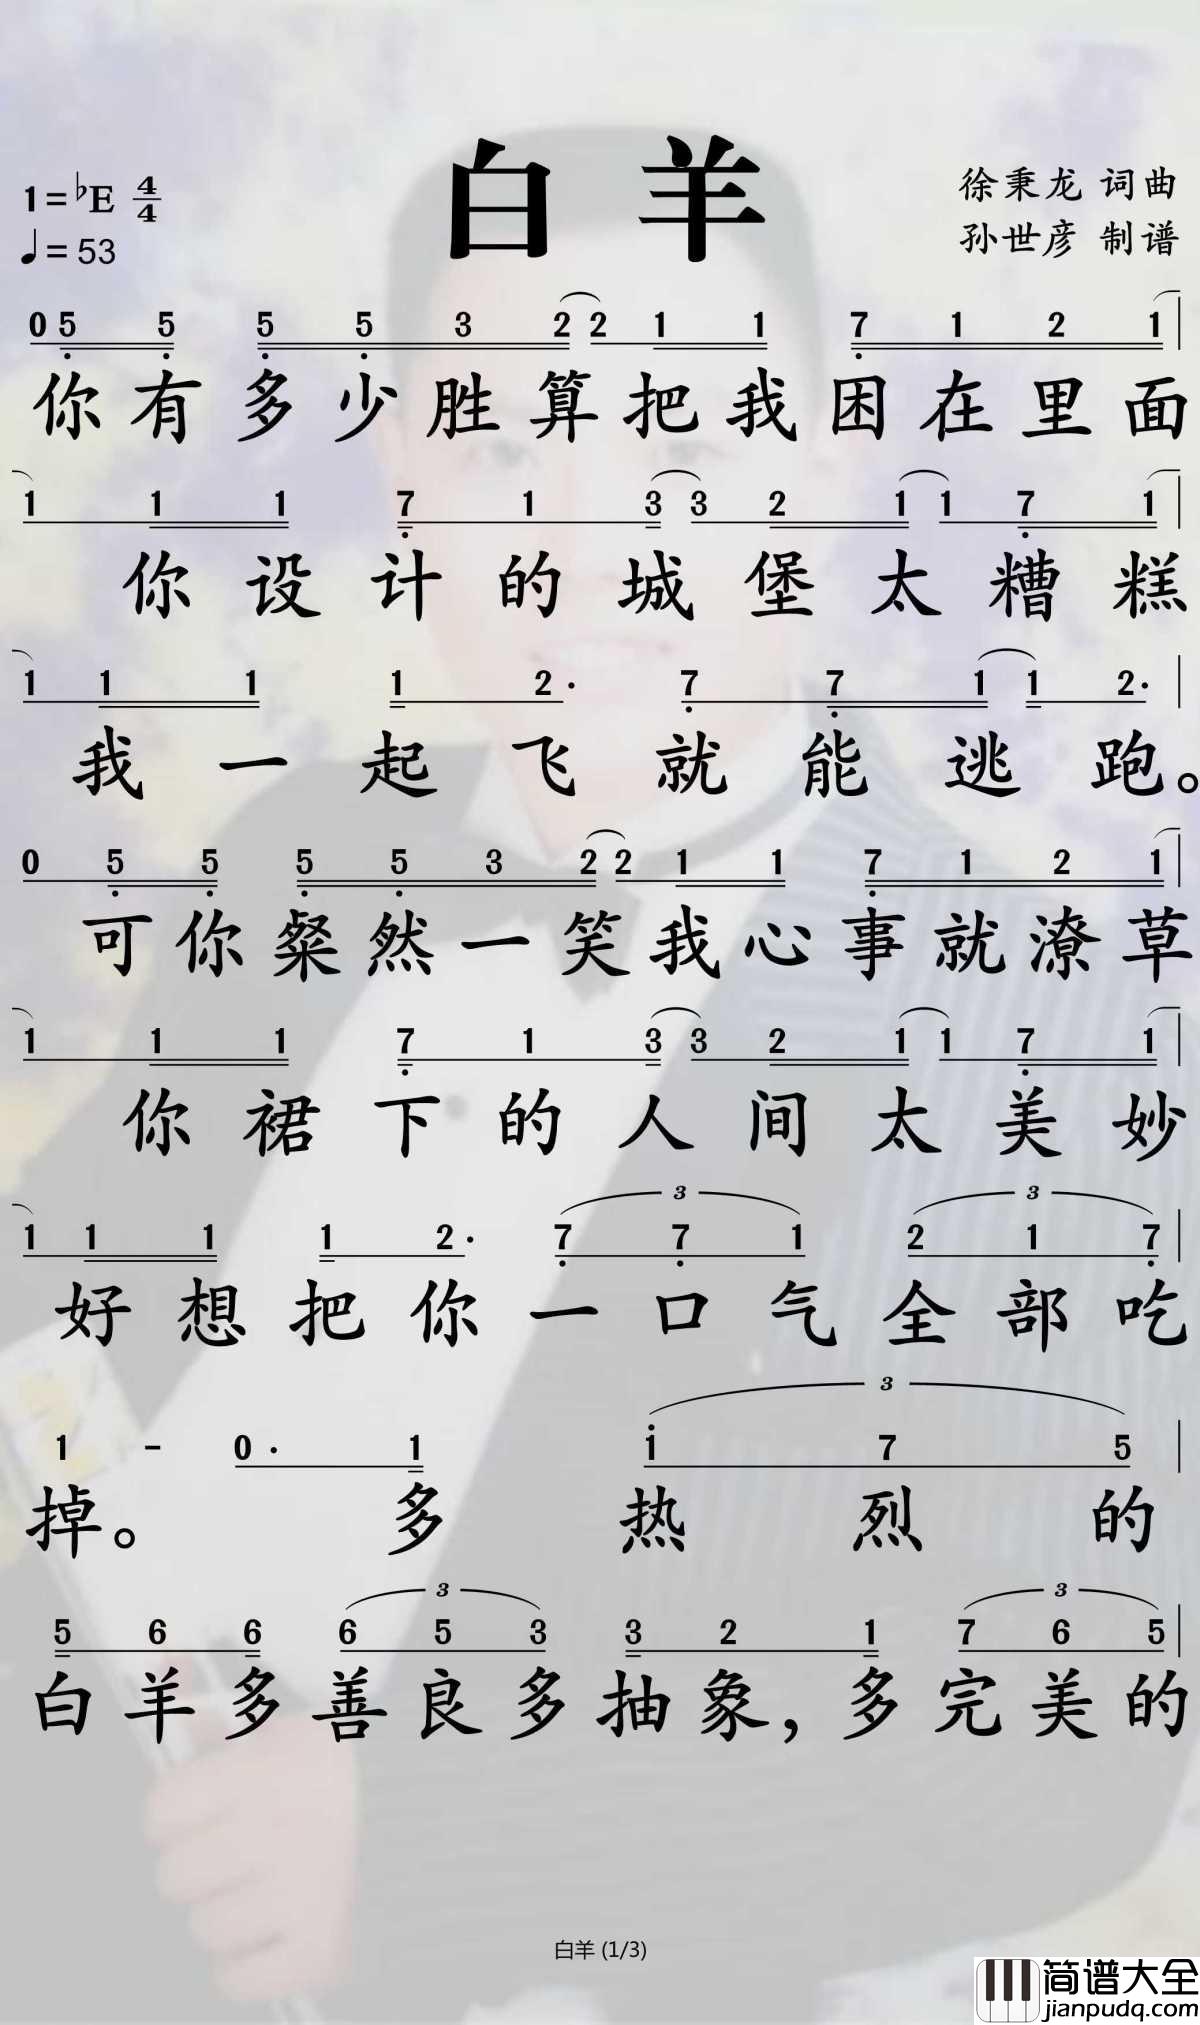 白羊
1=♭E 4/4
♩=53
徐秉龙 词曲
孙世彦 制谱
0 5 5 5 5 3 2 2 1 1 7 1 2 1
你有多少胜算把我困在里面
1 1 1 7 1 3 3 2 1 1 7 1
你设计的城堡太糟糕
1 1 1 1 2· 7 7 1 1 2·
我一起飞就能逃跑。
0 5 5 5 5 3 2 2 1 1 7 1 2 1
可你粲然一笑我心事就潦草
1 1 1 7 1 3 3 2 1 1 7 1
你裙下的人间太美妙
3 3
1 1 1 1 2· 7 7 1 2 1 7
好想把你一口气全部吃
3
1 - 0· 1 1 7 5
掉。多热烈的
3 3
5 6 6 6 5 3 3 2 1 7 6 5
白羊多善良多抽象，多完美的
白羊 (1/3)
简谱大全
jianpudq.com